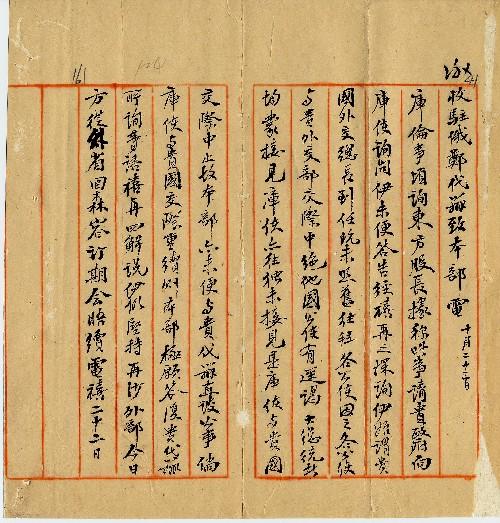 收駐俄鄭代辦致本部電 十月二十三日
庫倫事項詢東方股長據稱此事請貴部向
庫使詢問伊未便答告經禧再三深詢伊始謂貴
國外交總長到任既未照舊往拜各公使因之各公使
与貴外交部交際中絕他國公使有謁大總統者
均蒙接見庫使亦往獨未接見是庫使与貴國
交際中止故本部亦未便与貴代辦直接公事倘
庫使与貴國交際續則本部極願答復貴代辦
所詢等語禧再四解說伊似堅持再沙外部今日
方從外省回森訂期会晤續電禧二十二日
161